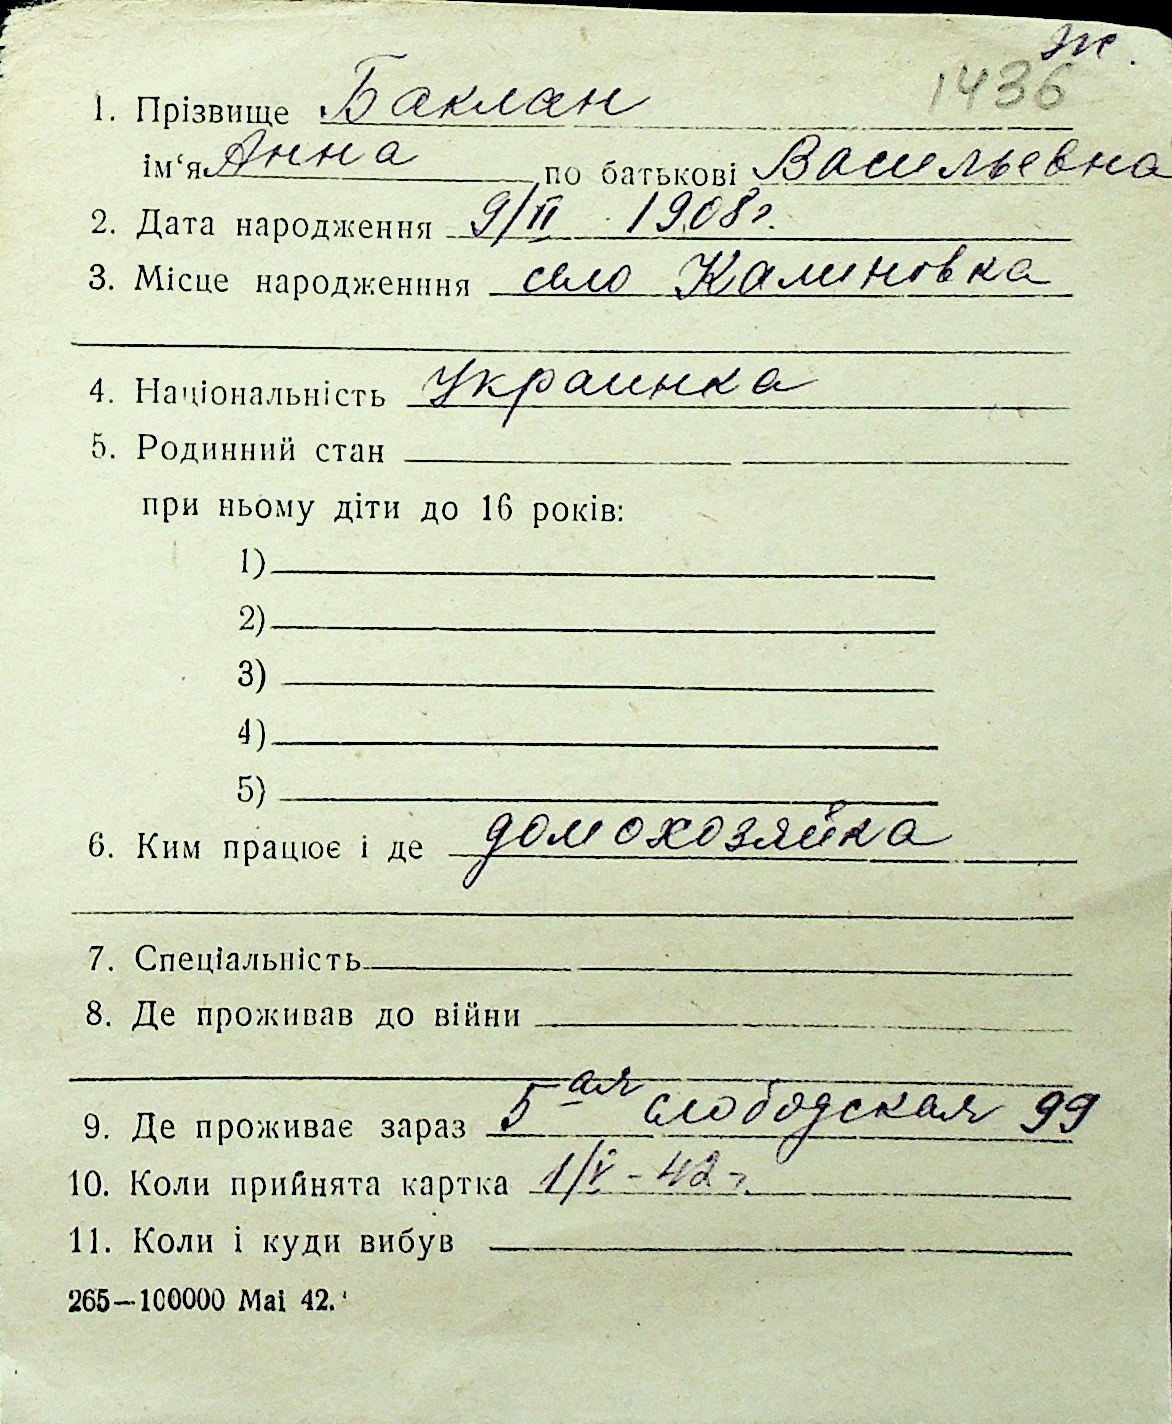 Ж.
1436
1. Прізвище Баклан
ім‘я Анна по батькові Васильевна
2. Дата народження 9/II 1908 г.
3. Місце народженння село Калиновка
4. Національність Украинка
5. Родинний стан
при ньому діти до 16 років:
1)
2)
3)
4)
5)
6. Ким працює і де домохозяйка
7. Спеціальність
8. Де проживав до війни
9. Де проживає зараз 5ая Слободская 99
10. Коли прийнята картка 1/V - 42 г.
11. Коли і куди вибув
265—100000 Mai 42.